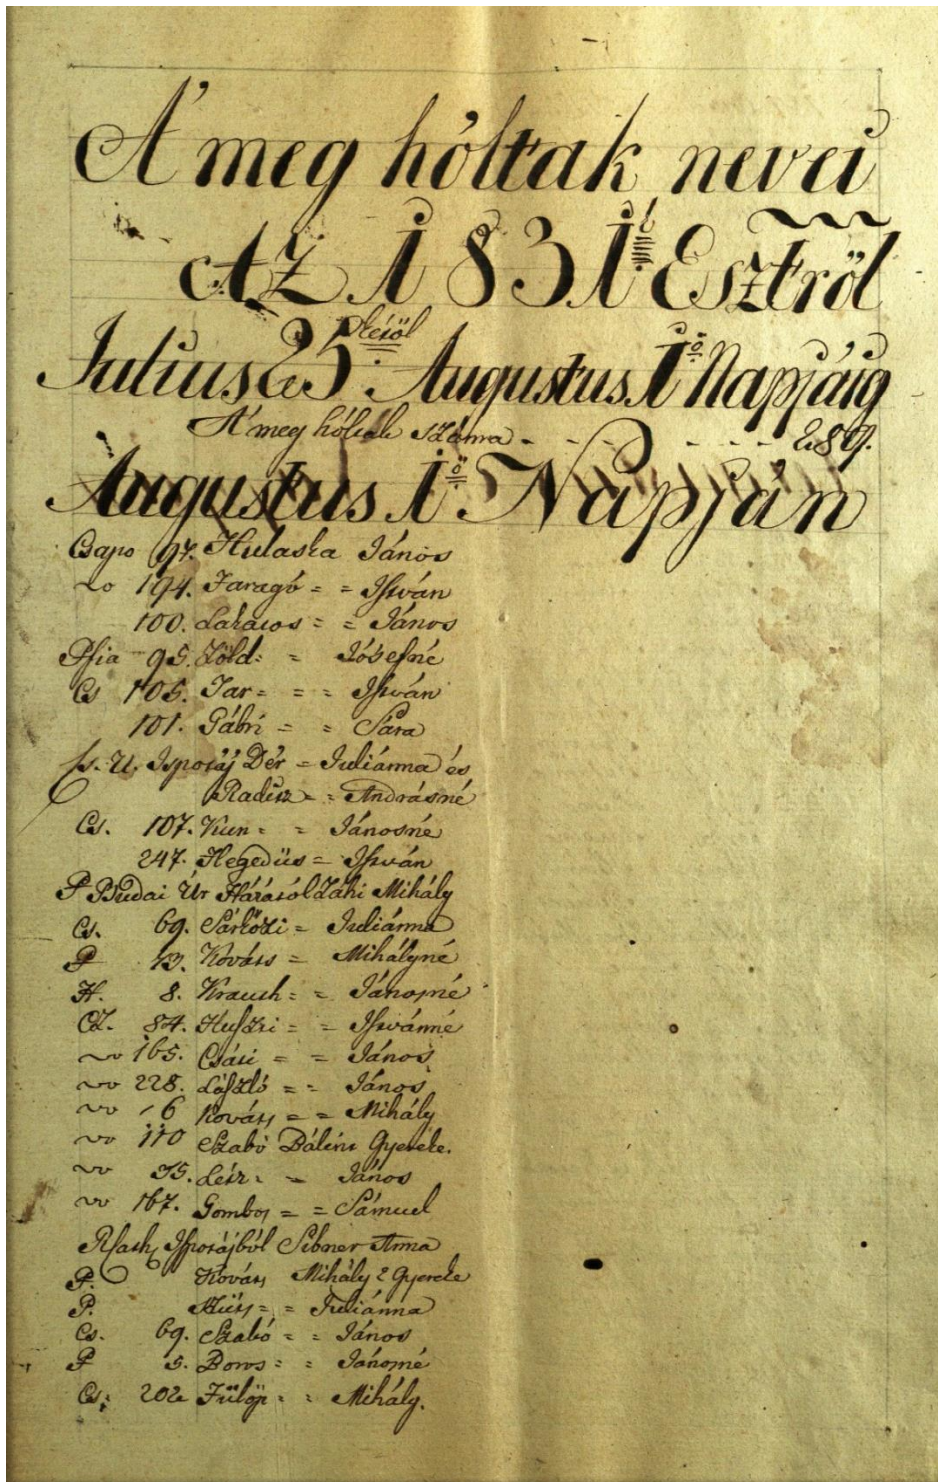 A' meg hóltak nevei
Az 1831 Esztről
Julius 25 Augustus 1ő Napjáig
A' meg hóltak száma - - - - - - 289.
Augustus 1ő Napján
Csapo 97. Hulaska János
194. Faragó = = István
100. Lakatos = = János
95. Zöld = = Jósefné
Cs 105. Tar = = = István
101. Gábri = = Sára
Ispotáj Dér = Juliánna és
Radisz = = Andrásné
Cs. 107. Kun = = Jánosné
247. Hegedüs = István
P Budai Úr Házától Záhi Mihály
Cs. 69. Sárközi = Juliánna
P 13. Kováts = Mihályné
H. 8. Kraush = = Jánosné
Cz. 84. Huszti = = Istvánné
165. Csáti = = János
228. László = = János
6 Kováts = = Mihály
110 Szabó Bálint Gyereke.
35. = János
167. Gombos = = Sámuel
Ispotájból Sebner Anna
P. Kováts Mihály 2 Gyereke
P. Szüts = = Juliánna
Cs. 69. Szabó = = János
P 5. Boros = = Jánosné
Cs. 202 Fülöp = = Mihály.